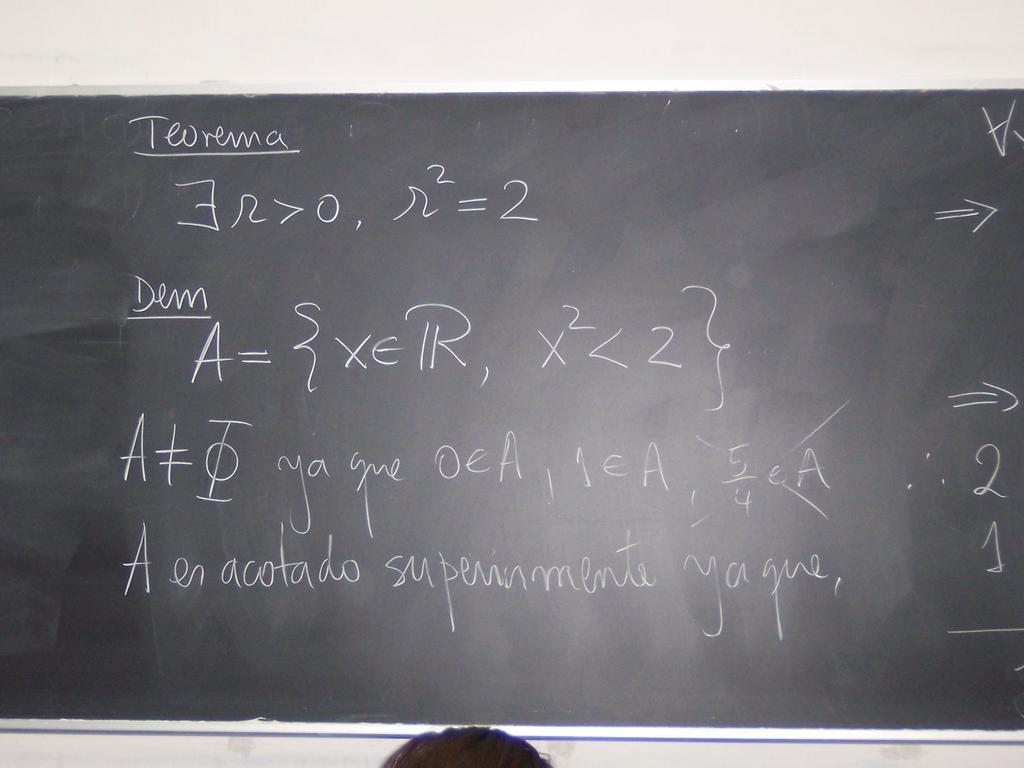 Teorema
∃ r > 0, r² = 2
Dem
A = { x ∈ ℝ, x² < 2 }
A ≠ Φ ya que 0 ∈ A, 1 ∈ A, 5/4 ∈ A
A es acotado superiormente ya que,
∀
⇒
⇒
∴ 2
1